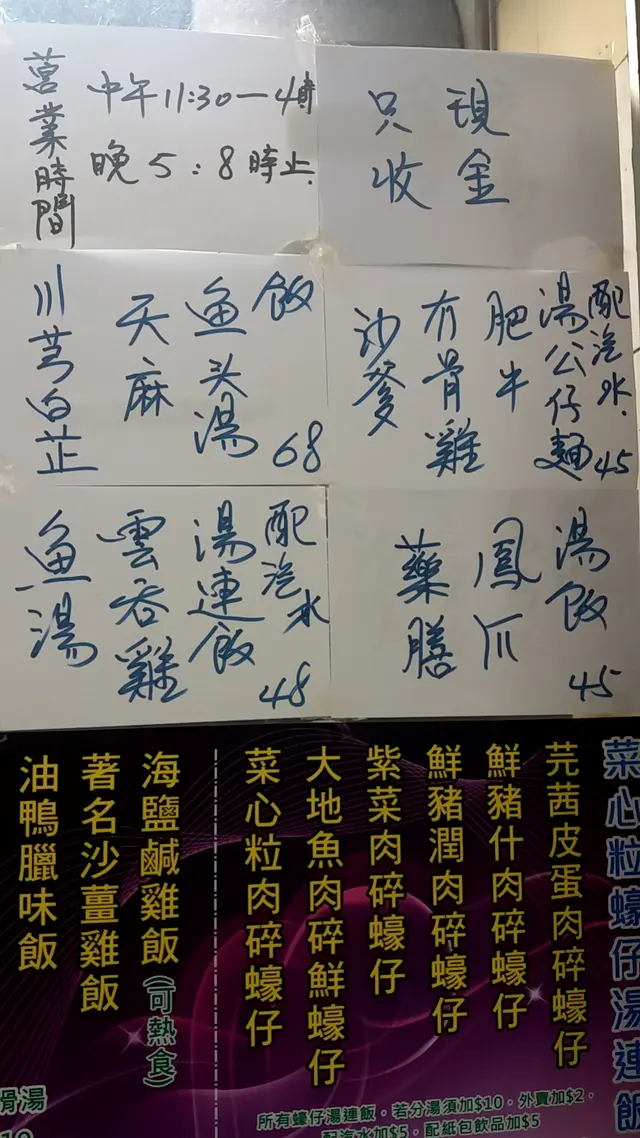 營業時間
中午11:30—4時
晚5:8時止.
只收
現金
川芎白芷
天麻
魚头湯
飯
68
沙爹
冇骨雞
肥牛
湯公仔麵
配汽水.
45
魚湯
雲吞雞
湯連飯
配汽水
48
藥膳
鳳爪
湯飯
45
菜心粒蠔仔湯連飯
芫茜皮蛋肉碎蠔仔
鮮豬什肉碎蠔仔
鮮豬潤肉碎蠔仔
紫菜肉碎蠔仔
大地魚肉碎鮮蠔仔
菜心粒肉碎蠔仔
海鹽鹹雞飯(可熱食)
著名沙薑雞飯
油鴨臘味飯
滑湯
所有蠔仔湯連飯，若分湯須加$10，外賣加$2，
配汽水加$5，配紙包飲品加$5